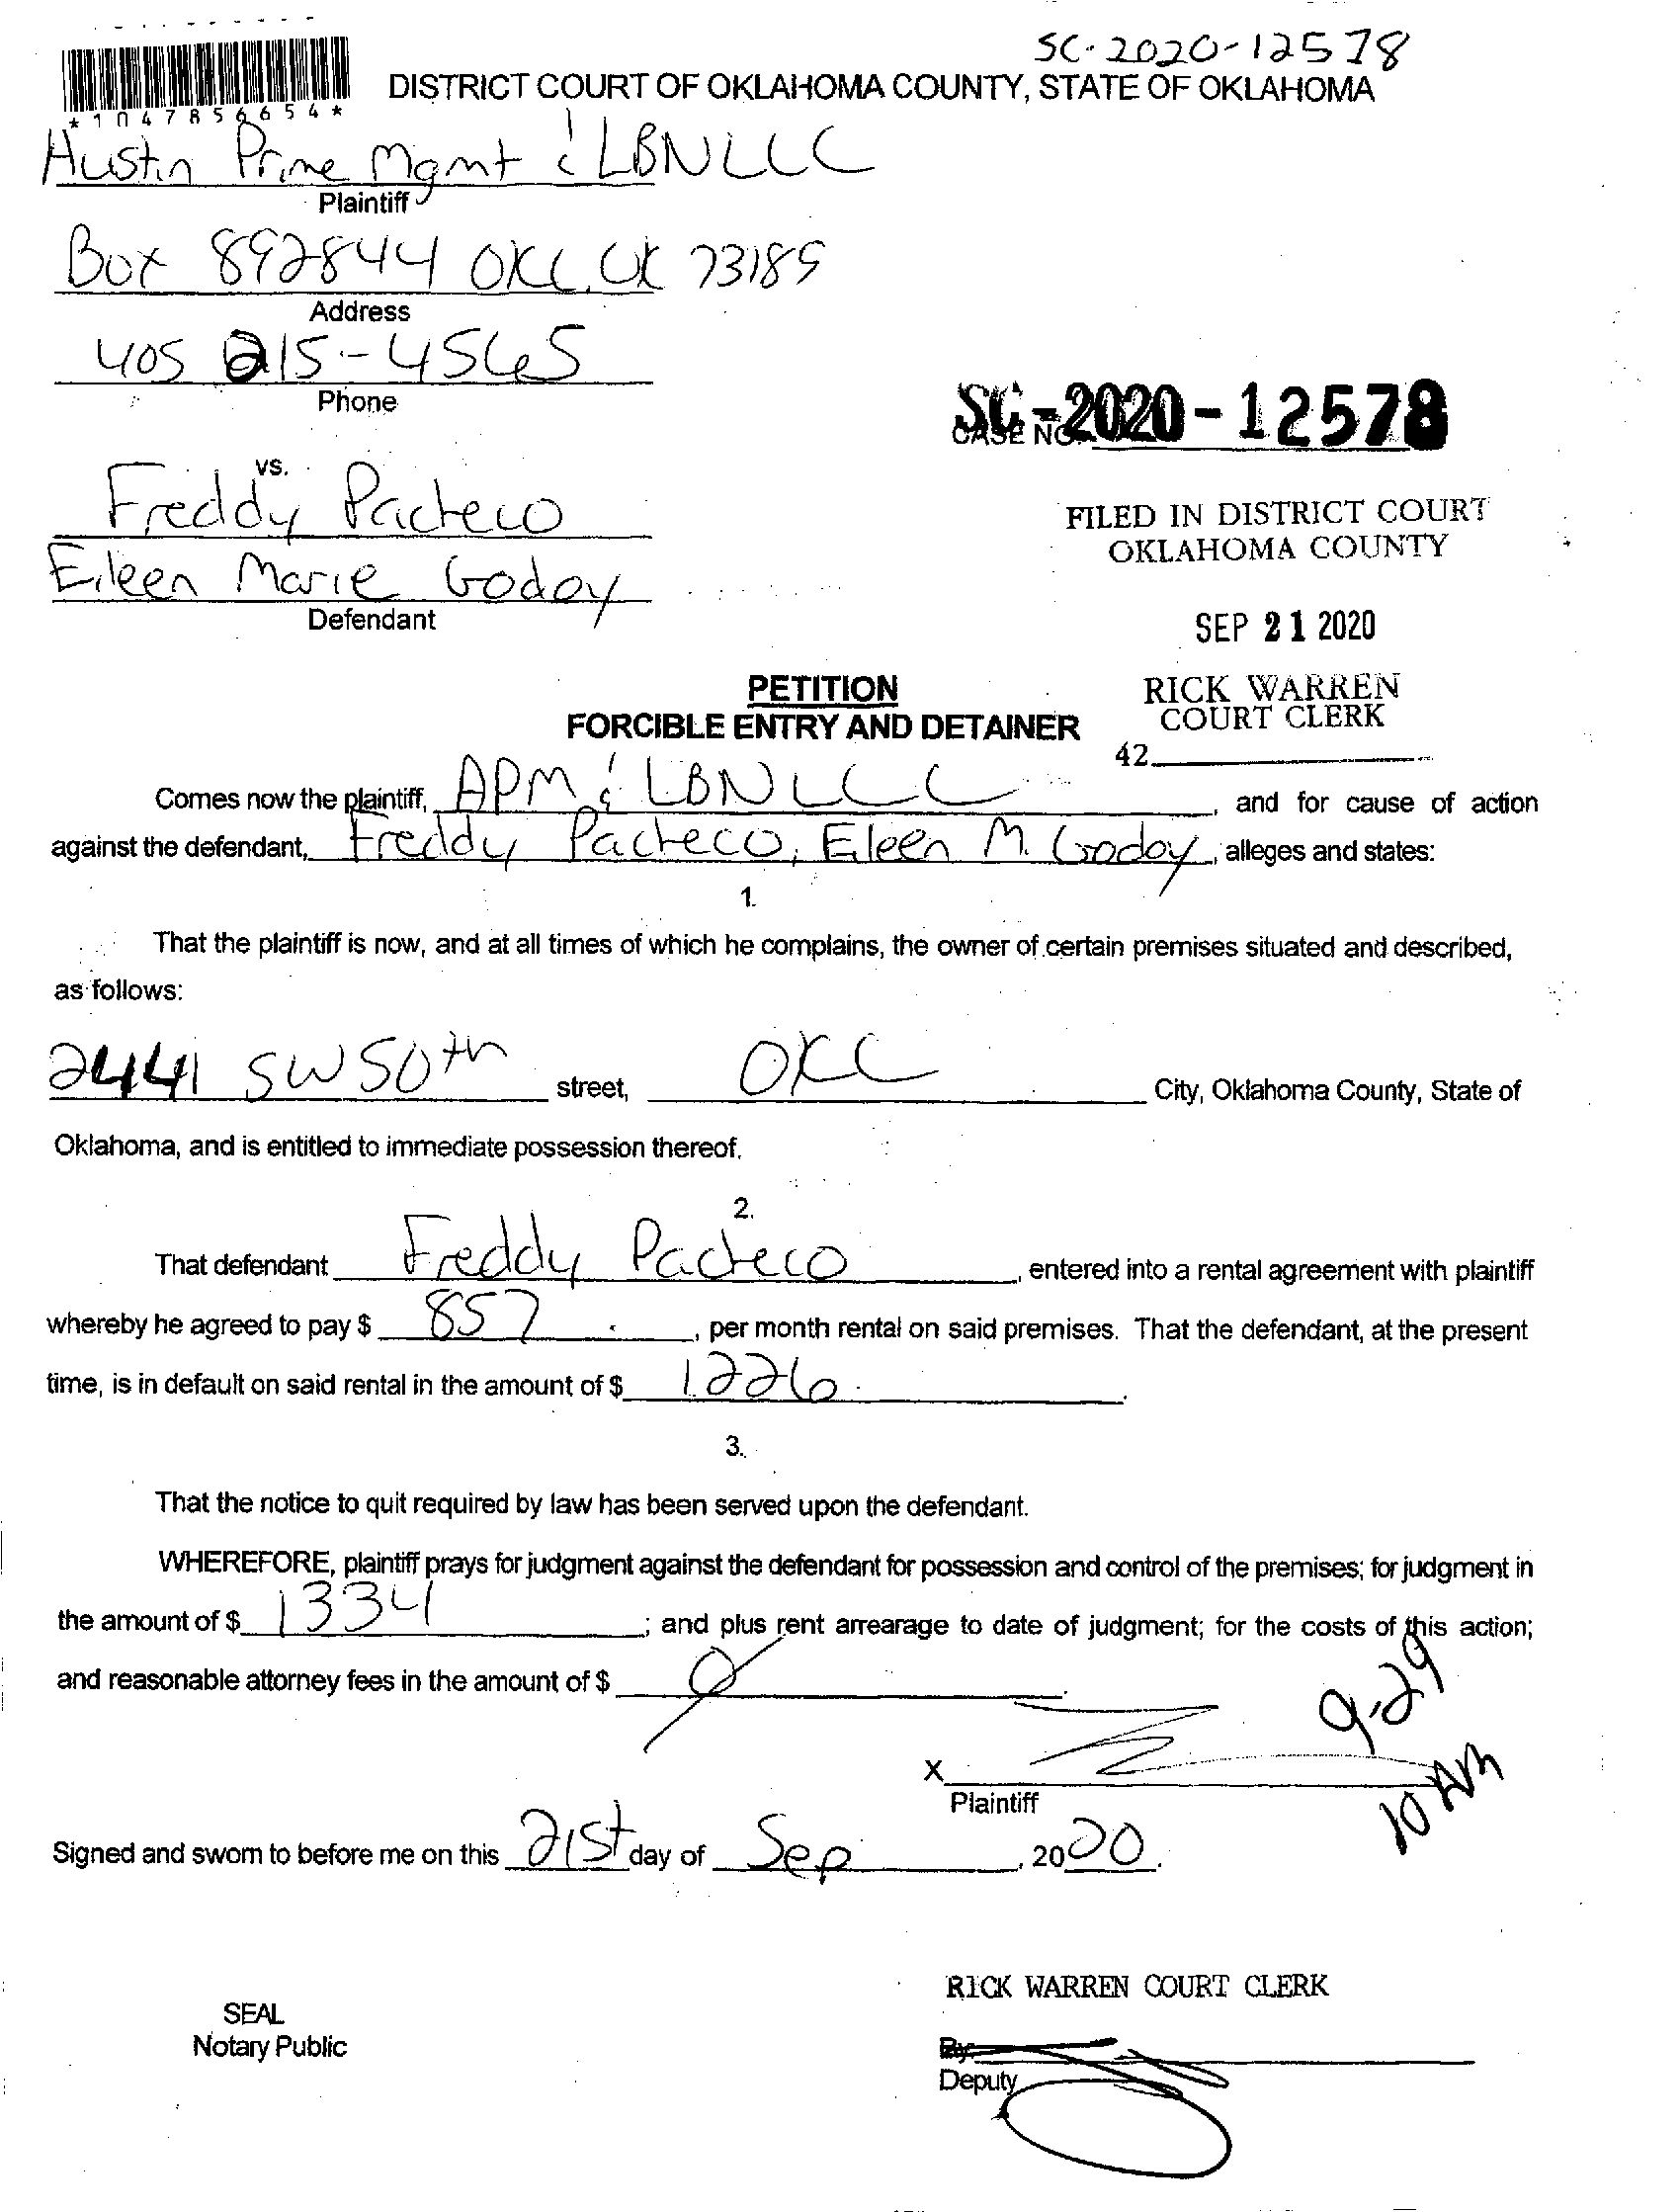 SC-2020-12578
DISTRICT COURT OF OKLAHOMA COUNTY, STATE OF OKLAHOMA
*1047856654*
Austin Prime Mgmt & LBNLLC
Plaintiff
Box 892844 OKC, OK 73189
Address
405 215-4565
Phone
SC-2020-12578
CASE NO.
vs.
Freddy Pacheco
Eileen Marie Godoy
Defendant
FILED IN DISTRICT COURT
OKLAHOMA COUNTY
SEP 21 2020
RICK WARREN
COURT CLERK
42
PETITION
FORCIBLE ENTRY AND DETAINER
Comes now the plaintiff, APM & LBNLLC, and for cause of action
against the defendant, Freddy Pacheco, Eileen M. Godoy, alleges and states:
1.
That the plaintiff is now, and at all times of which he complains, the owner of certain premises situated and described,
as follows:
2441 SW 50th street, OKC City, Oklahoma County, State of
Oklahoma, and is entitled to immediate possession thereof.
2.
That defendant Freddy Pacheco, entered into a rental agreement with plaintiff
whereby he agreed to pay $ 857, per month rental on said premises. That the defendant, at the present
time, is in default on said rental in the amount of $ 1226.
3.
That the notice to quit required by law has been served upon the defendant.
WHEREFORE, plaintiff prays for judgment against the defendant for possession and control of the premises; for judgment in
the amount of $ 1334; and plus rent arrearage to date of judgment; for the costs of this action;
and reasonable attorney fees in the amount of $ 0.
9-29
10 AM
X
Plaintiff
Signed and sworn to before me on this 21st day of Sep, 2020.
RICK WARREN COURT CLERK
SEAL
Notary Public
By:
Deputy